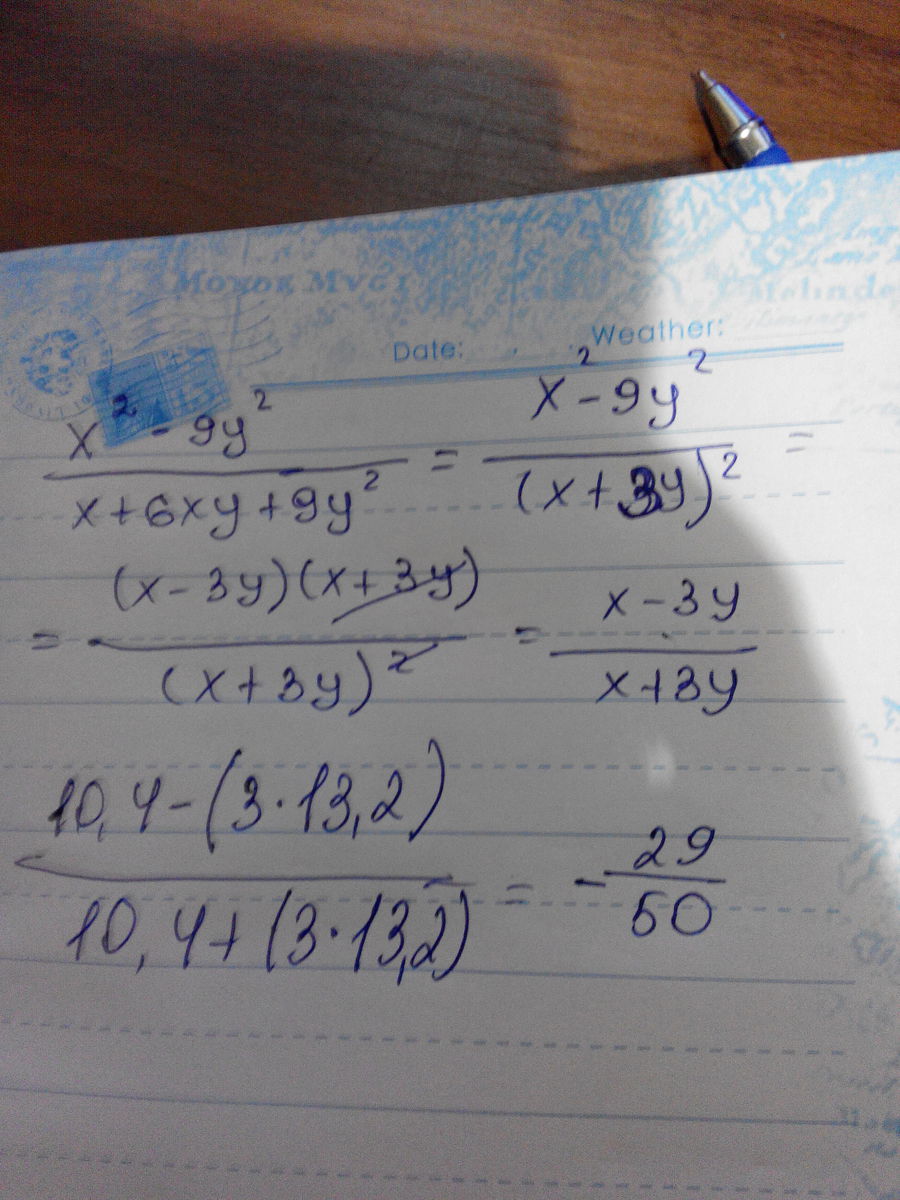 Date: Weather:
x² - 9y² / x + 6xy + 9y² = x² - 9y² / (x + 3y)² =
= (x - 3y)(x + 3y) / (x + 3y)² = x - 3y / x + 3y
10,4 - (3 · 13,2) / 10,4 + (3 · 13,2) = - 29 / 50